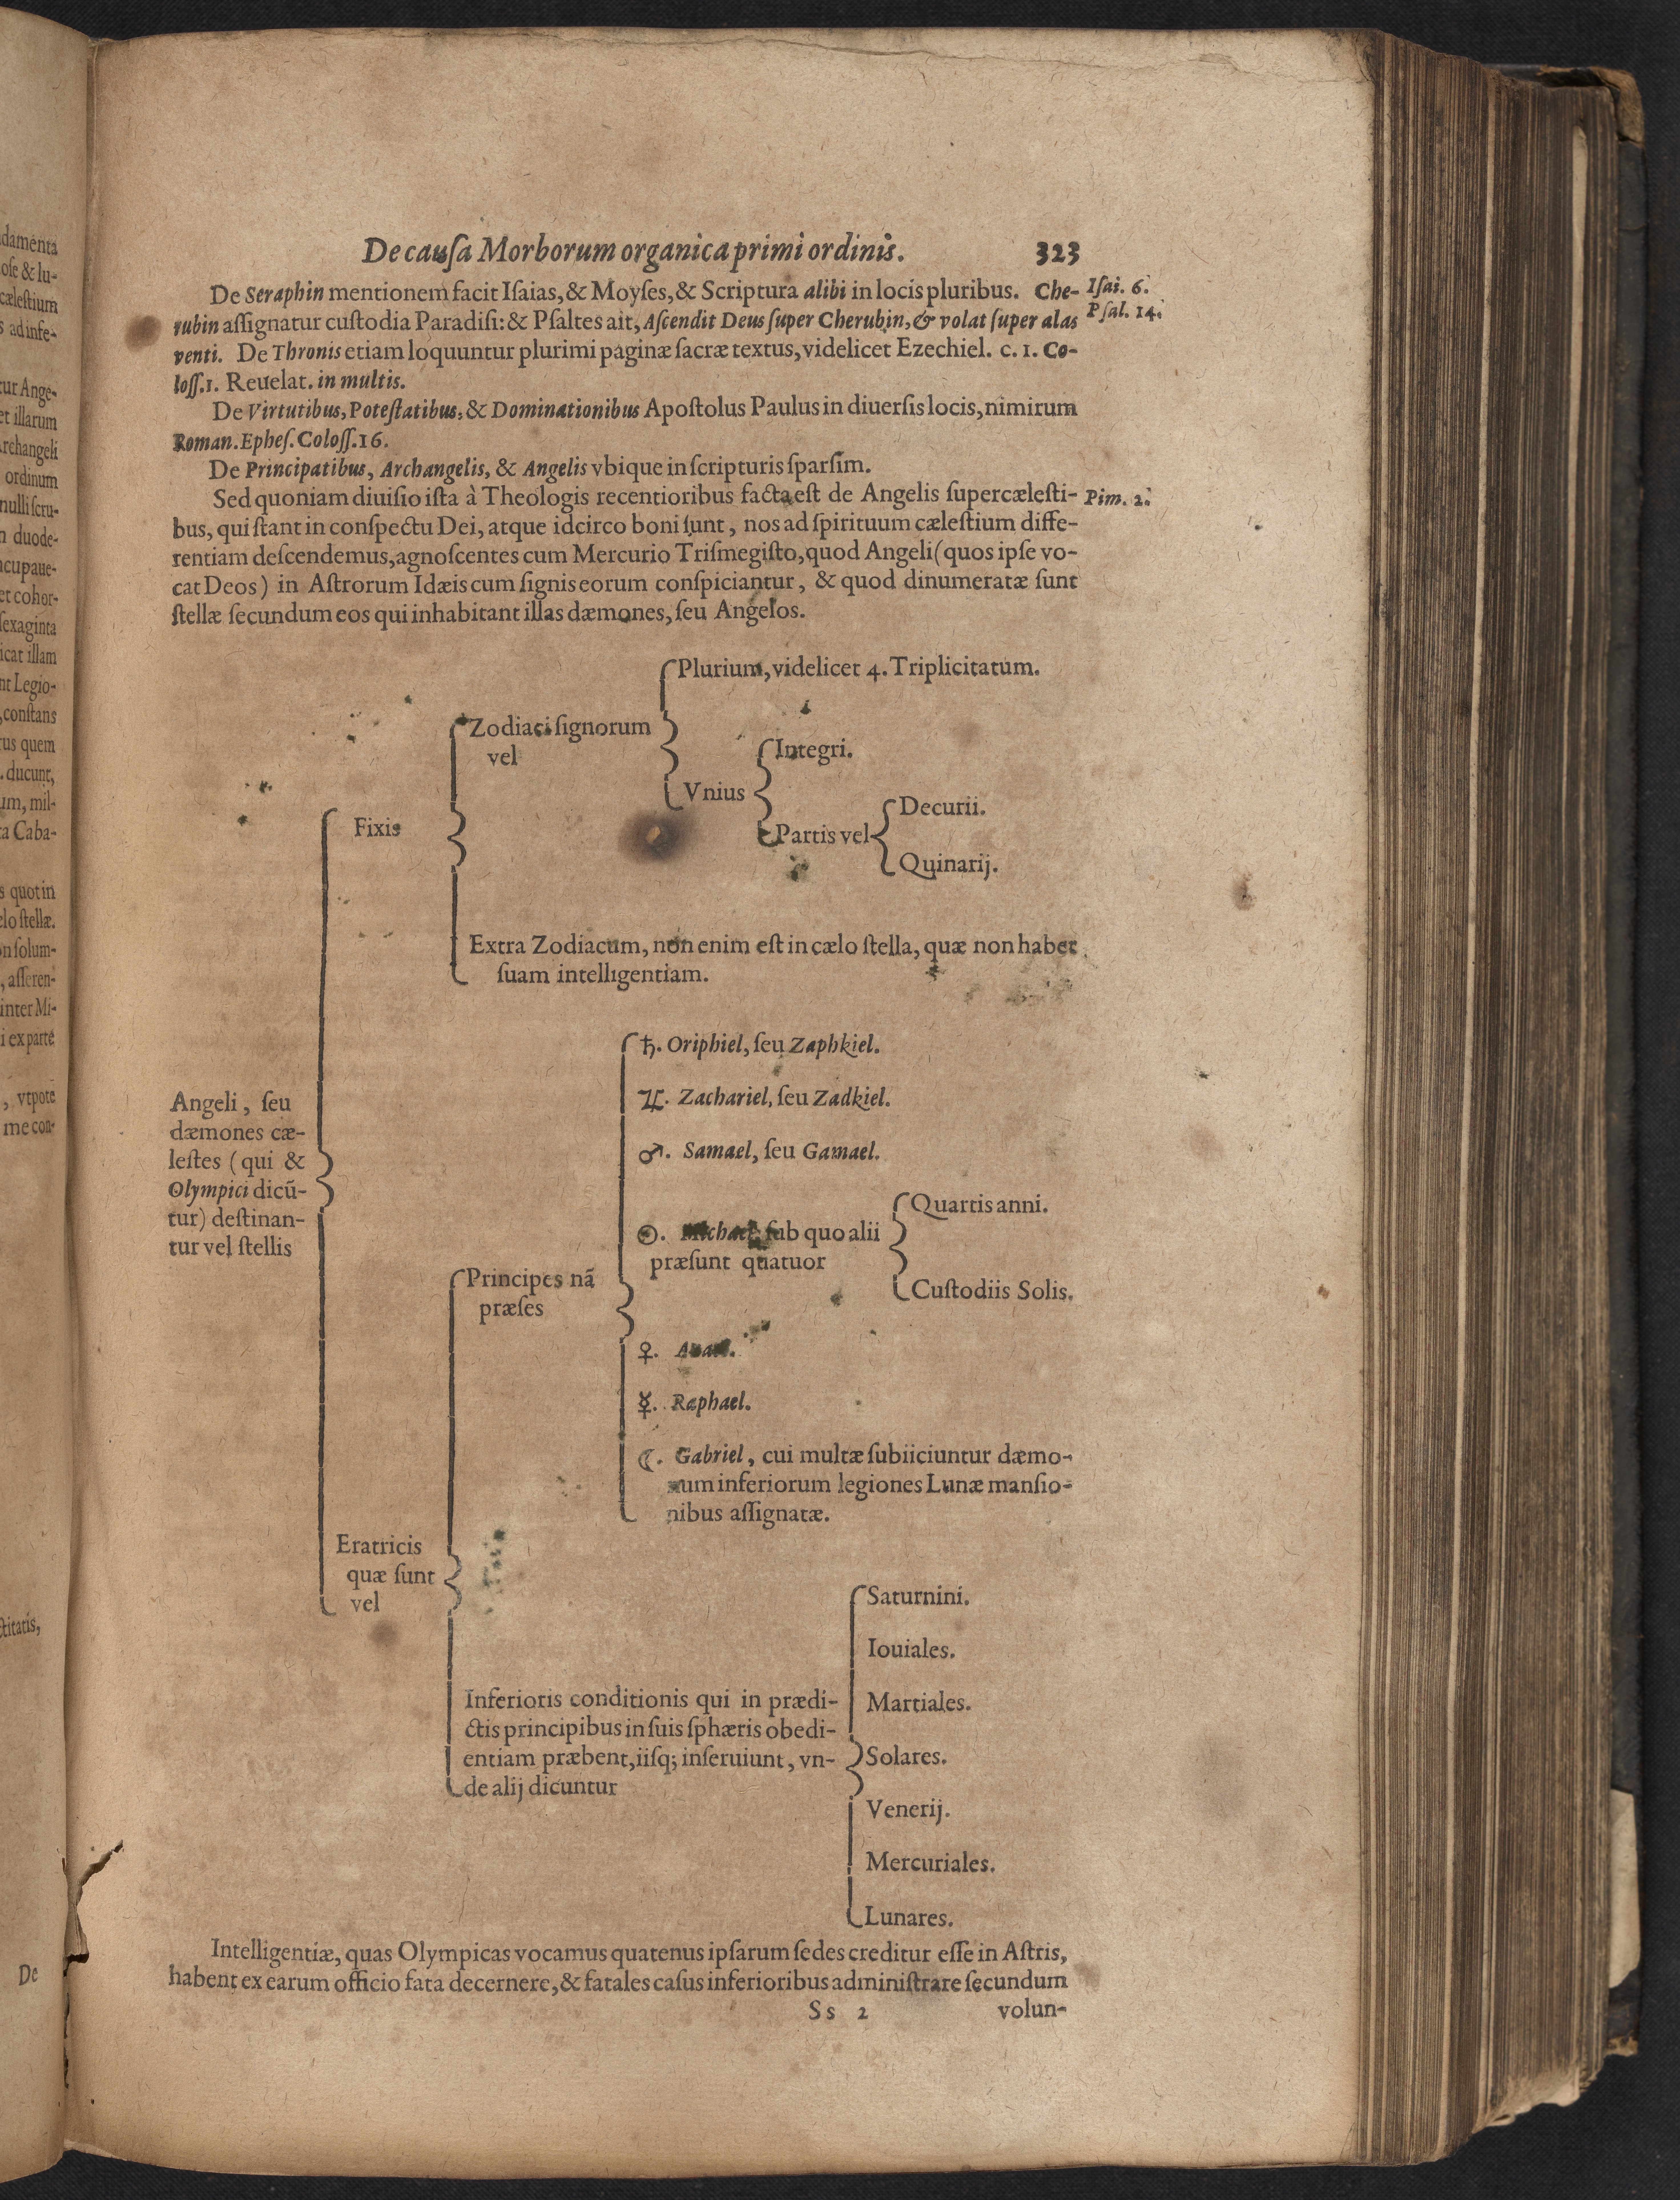 De cauſa Morborum organica primi ordinis. 323
De Seraphin mentionem facit Iſaias, & Moyſes, & Scriptura alibi in locis pluribus. Che-
Iſai. 6.
rubin aſſignatur cuſtodia Paradiſi: & Pſaltes ait, Aſcendit Deus ſuper Cherubin, & volat ſuper alas
Pſal. 14.
venti. De Thronis etiam loquuntur plurimi paginæ ſacræ textus, videlicet Ezechiel. c. 1. Co-
loſſ. 1. Reuelat. in multis.
De Virtutibus, Poteſtatibus, & Dominationibus Apoſtolus Paulus in diuerſis locis, nimirum
Roman. Epheſ. Coloſſ. 16.
De Principatibus, Archangelis, & Angelis vbique in ſcripturis ſparſim.
Sed quoniam diuiſio iſta à Theologis recentioribus facta eſt de Angelis ſupercæleſti-
Pim. 2.
bus, qui ſtant in conſpectu Dei, atque idcirco boni ſunt, nos ad ſpirituum cæleſtium diffe-
rentiam deſcendemus, agnoſcentes cum Mercurio Triſmegiſto, quod Angeli (quos ipſe vo-
cat Deos) in Aſtrorum Idæis cum ſignis eorum conſpiciantur, & quod dinumeratæ ſunt
ſtellæ ſecundum eos qui inhabitant illas dæmones, ſeu Angelos.
Angeli, ſeu
dæmones cæ-
leſtes (qui &
Olympici dicũ-
tur) deſtinan-
tur vel ſtellis
Fixis
Zodiaci ſignorum
vel
Plurium, videlicet 4. Triplicitatum.
Vnius
Integri.
Partis vel
Decurii.
Quinarij.
Extra Zodiacum, non enim eſt in cælo ſtella, quæ non habet
ſuam intelligentiam.
Eratricis
quæ ſunt
vel
Principes nã
præſes
♄. Oriphiel, ſeu Zaphkiel.
♃. Zachariel, ſeu Zadkiel.
♂. Samael, ſeu Gamael.
☉. Michael, ſub quo alii
præſunt quatuor
Quartis anni.
Cuſtodiis Solis.
♀.
☿. Raphael.
☾. Gabriel, cui multæ ſubiiciuntur dæmo-
num inferiorum legiones Lunæ manſio-
nibus aſſignatæ.
Inferioris conditionis qui in prædi-
ctis principibus in ſuis ſphæris obedi-
entiam præbent, iiſq; inſeruiunt, vn-
de alij dicuntur
Saturnini.
Iouiales.
Martiales.
Solares.
Venerij.
Mercuriales.
Lunares.
Intelligentiæ, quas Olympicas vocamus quatenus ipſarum ſedes creditur eſſe in Aſtris,
habent ex earum officio fata decernere, & fatales caſus inferioribus adminiſtrare ſecundum
Ss 2 volun-